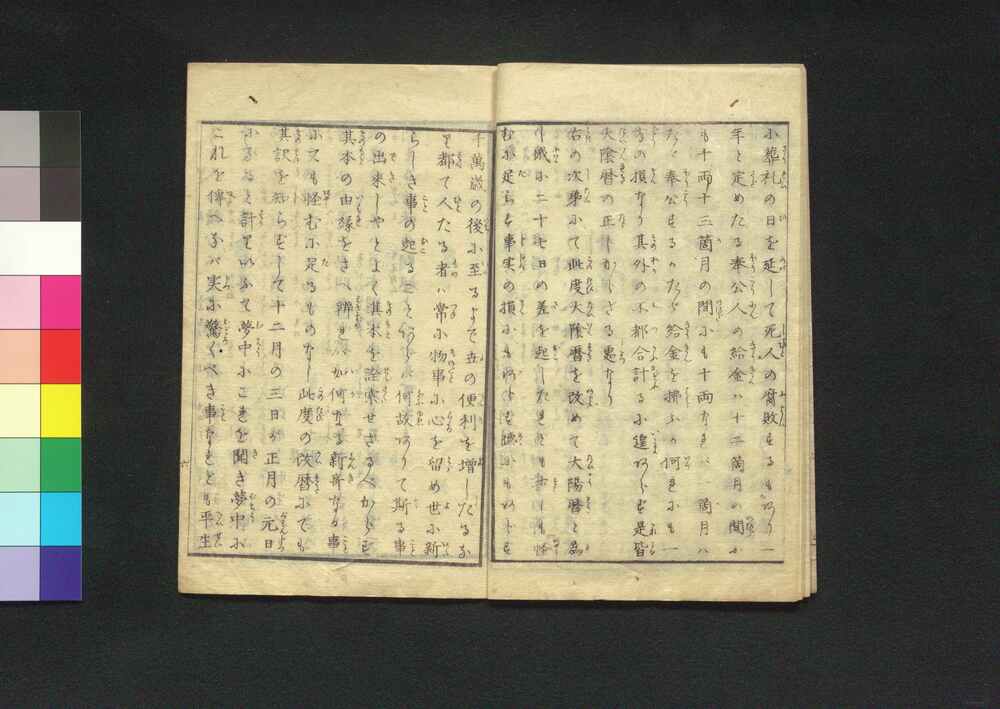 に葬礼の日を延して死人の腐敗するもあり一
年と定めたる奉公人の給金ハ十二箇月の間に
も十両十三箇月の間にも十両なれバ一箇月ハ
たゞ奉公するかたゞ給金を拂ふか何れにも一
方の損なり其外の不都合計るに遑あらず是皆
大陰暦の正しからざる悪なり
右の次第にて此度大陰暦を改めて大陽暦と為
し俄に二十七日の差を起したれども 怪
むに足らず事実の損にもあらず にもあらず
千萬歳の後に至るまで の便利を増したるな
り都て人たる者ハ常に物事に心を留め世に新
らしき事の起ることあらバ何故ありて斯る事
の出来しやとよく其本を詮索せざるべからず
其本の由縁をさへ辨 バ如何なる新奇なる事
に又も怪むに足るものなし此度の改暦にても
其訳を知らずして十二月の三日が正月の元日
になると計りいふて夢中にこれを聞き夢中に
これを傳へなバ実に驚くべき事なれども平生
六